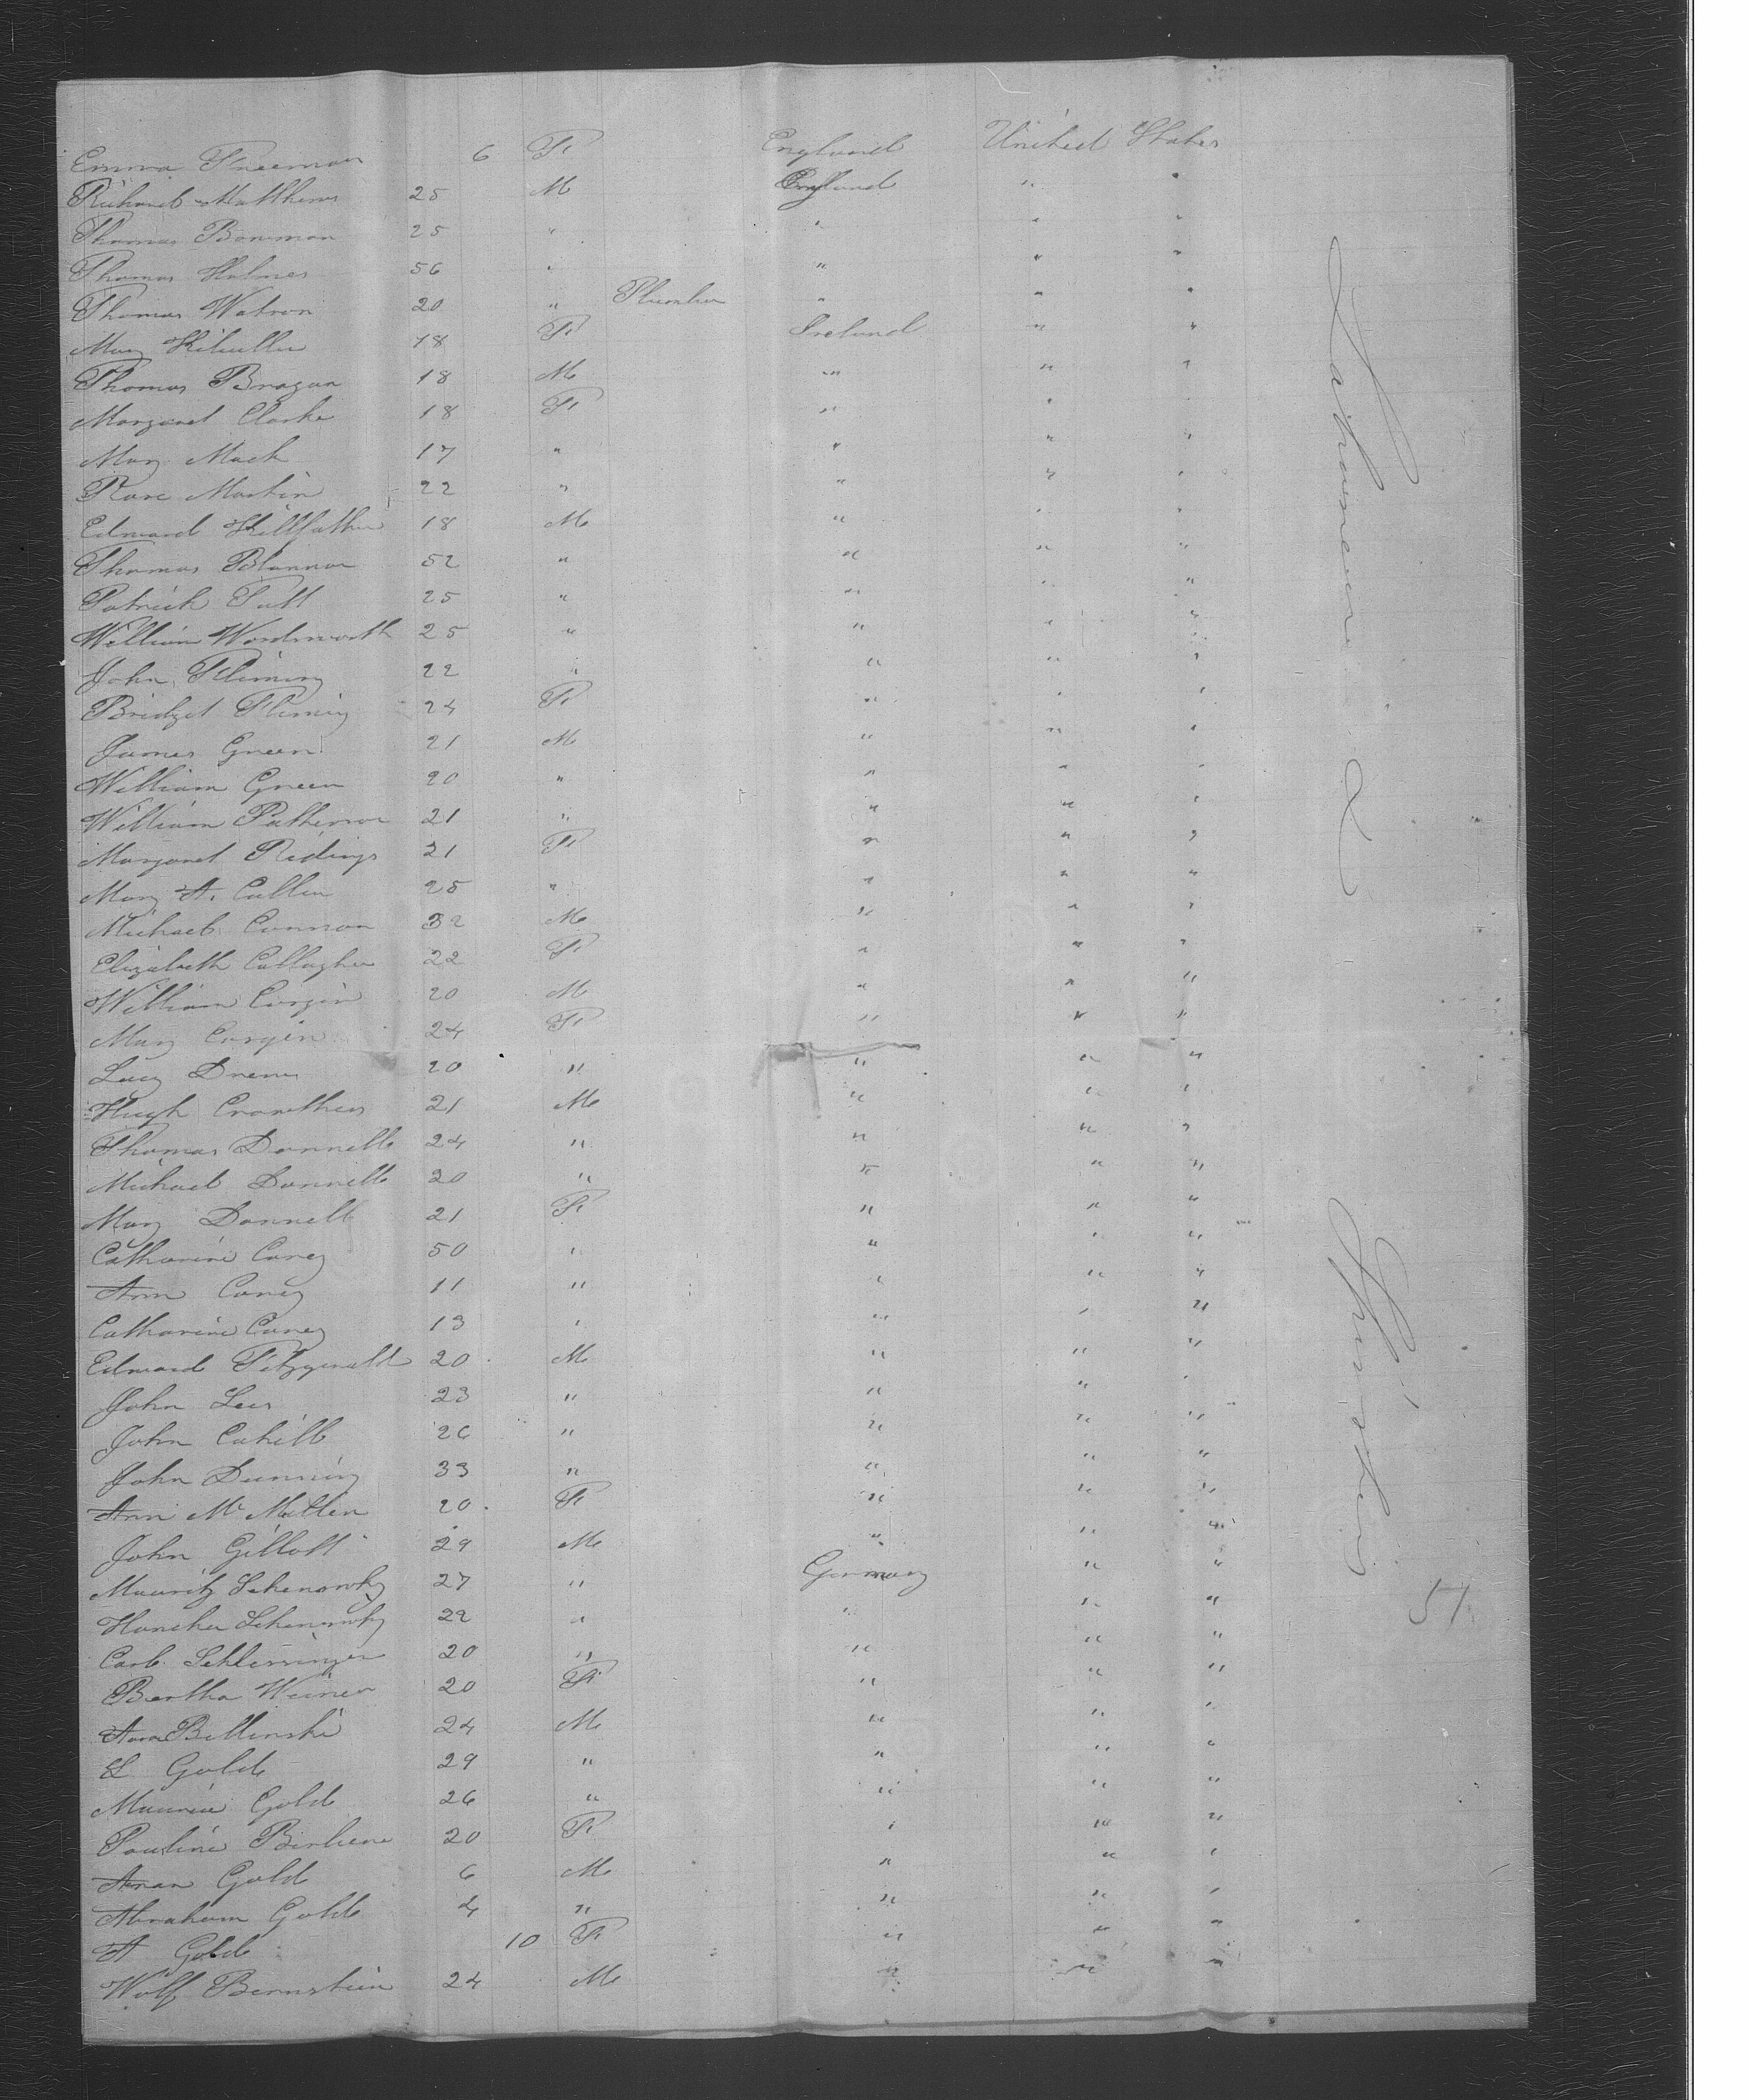 Emma Freeman 6 F England United States
Richard Matthews 25 M England " "
Thomas Bowman 25 " " " "
Thomas Holmes 56 " " " "
Thomas Watson 20 " Plumber " " "
Mary 18 F Ireland " "
Thomas Brogan 18 M " " "
Margaret Clarke 18 F " " "
Mary Mack 17 " " " "
Rose Martin 22 " " " "
Edward 18 M " " "
Thomas 52 " " " "
Patrick 25 " " " "
William Wordsworth 25 " " " "
John Fleming 22 " " " "
Bridget Fleming 24 F " " "
James Green 21 M " " "
William Green 20 " " " "
William Patterson 21 " " " "
Margaret Ridings 21 F " " "
Mary A. Cullen 25 " " " "
Michael Connon 32 M " " "
Elizabeth Callagher 22 F " " "
William Corgin 20 M " " "
Mary Corgin 24 F " " "
Lucy Drew 20 " " " "
Hugh Crowther 21 M " " "
Thomas Donnell 24 " " " "
Michael Donnell 20 " " " "
Mary Donnell 21 F " " "
Catharine Carey 50 " " " "
Ann Carey 11 " " " "
Catharine Carey 13 " " " "
Edward Fitzgerald 20 M " " "
John Lees 23 " " " "
John Cahill 26 " " " "
John Dunning 33 " " " "
Ann McMillen 20 F " " "
John Gillott 29 M " " "
Mauritz 27 " Germany " "
22 " " " "
Carl Schlessinger 20 " " " "
Bertha Weiner 20 F " " "
Billinski 24 M " " "
L Gold 29 " " " "
Gold 26 " " " "
Pauline 20 F " " "
Gold 6 M " " "
Abraham Gold 4 " " " "
A Gold 10 F " " "
Wolf Bernstein 24 M " " "
51